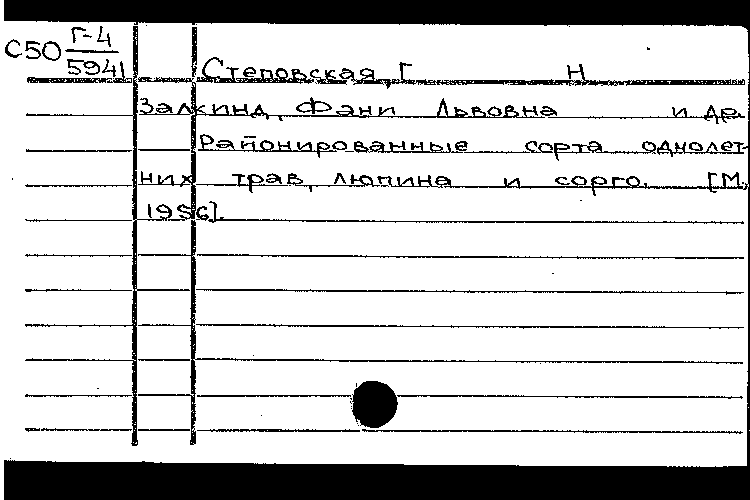 С50 Г-4
5941
Степовская, Г Н
Залкинд, Фани Львовна и др.
Районированные сорта однолет-
них трав, люпина и сорго. [М.,
1956].